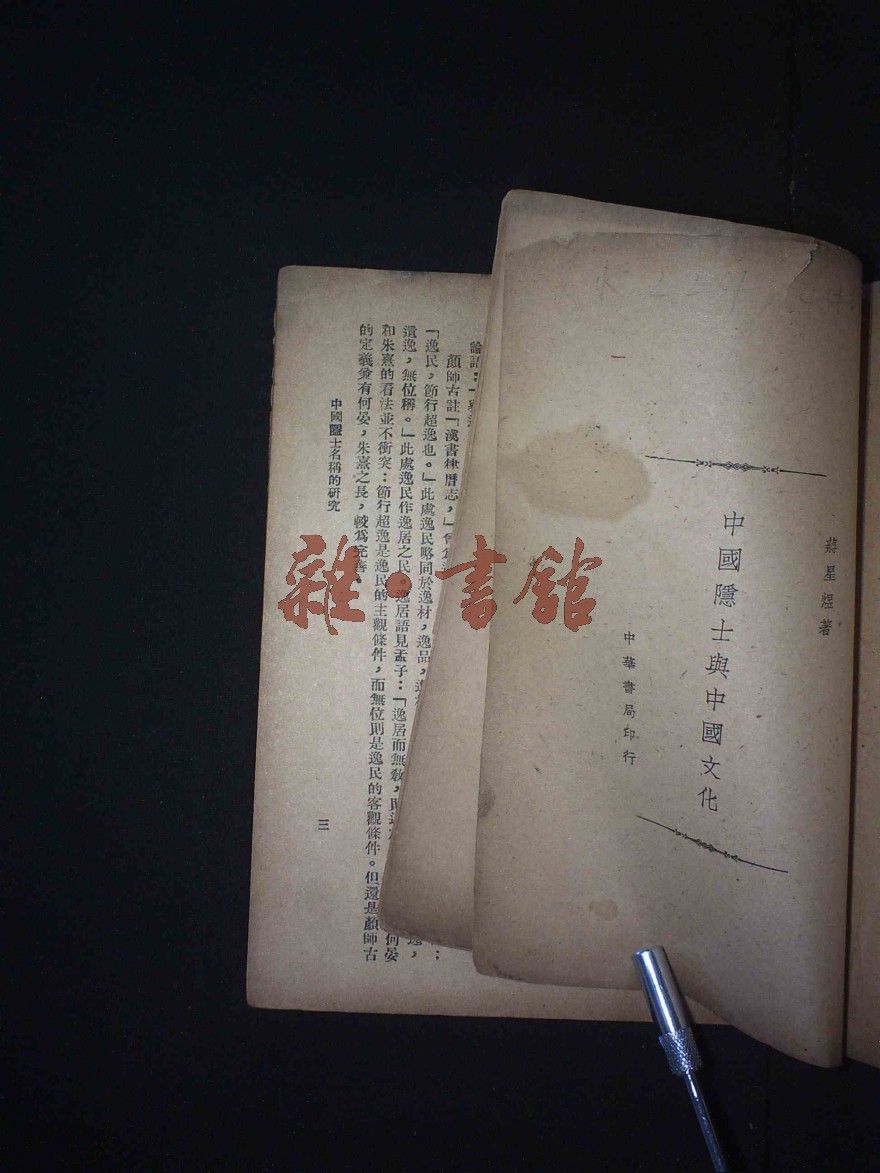 蔣星煜著
中國隱士與中國文化
中華書局印行
論語：「
顏師古註「漢書律曆志，」
「逸民，節行超逸也。」此處逸民略同於逸材，逸品，
遺逸，無位稱。」此處逸民作逸居之民。逸居語見孟子：「逸居而無教，則近
和朱熹的看法並不衝突：節行超逸是逸民的主觀條件，而無位則是逸民的客觀條件。但還是顏師古
的定義兼有何晏，朱熹之長，較爲完善。
中國隱士名稱的研究
三
雜·書館